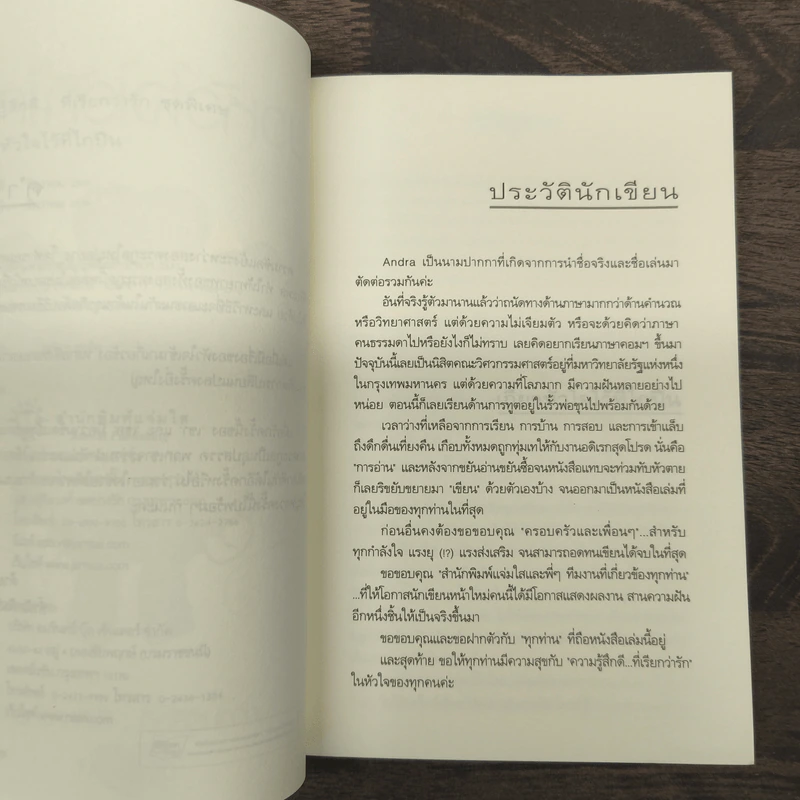 ประวัตินักเขียน
Andra เป็นนามปากกาที่เกิดจากการนำชื่อจริงและชื่อเล่นมา
ตัดต่อรวมกันค่ะ
อันที่จริงรู้ตัวมานานแล้วว่าถนัดทางด้านภาษามากกว่าด้านคำนวณ
หรือวิทยาศาสตร์ แต่ด้วยความไม่เจียมตัว หรือจะด้วยคิดว่าภาษา
คนธรรมดาไปหรือยังไงก็ไม่ทราบ เลยคิดอยากเรียนภาษาคอมฯ ขึ้นมา
ปัจจุบันนี้เลยเป็นนิสิตคณะวิศวกรรมศาสตร์อยู่ที่มหาวิทยาลัยรัฐแห่งหนึ่ง
ในกรุงเทพมหานคร แต่ด้วยความที่โลภมาก มีความฝันหลายอย่างไป
หน่อย ตอนนี้ก็เลยเรียนด้านการทูตอยู่ในรั้วพ่อขุนไปพร้อมกันด้วย
เวลาว่างที่เหลือจากการเรียน การบ้าน การสอบ และการเข้าแล็บ
ถึงดึกดื่นเที่ยงคืน เกือบทั้งหมดถูกทุ่มเทให้กับงานอดิเรกสุดโปรด นั่นคือ
"การอ่าน" และหลังจากขยันอ่านขยันซื้อจนหนังสือแทบจะท่วมทับหัวตาย
ก็เลยริขยับขยายมา "เขียน" ด้วยตัวเองบ้าง จนออกมาเป็นหนังสือเล่มที่
อยู่ในมือของทุกท่านในที่สุด
ก่อนอื่นคงต้องขอขอบคุณ "ครอบครัวและเพื่อนๆ"...สำหรับ
ทุกกำลังใจ แรงยุ (!?) แรงส่งเสริม จนสามารถอดทนเขียนได้จบในที่สุด
ขอขอบคุณ "สำนักพิมพ์แจ่มใสและพี่ๆ ทีมงานที่เกี่ยวข้องทุกท่าน"
...ที่ให้โอกาสนักเขียนหน้าใหม่คนนี้ได้มีโอกาสแสดงผลงาน สานความฝัน
อีกหนึ่งชิ้นให้เป็นจริงขึ้นมา
ขอขอบคุณและขอฝากตัวกับ "ทุกท่าน" ที่ถือหนังสือเล่มนี้อยู่
และสุดท้าย ขอให้ทุกท่านมีความสุขกับ "ความรู้สึกดี...ที่เรียกว่ารัก"
ในหัวใจของทุกคนค่ะ